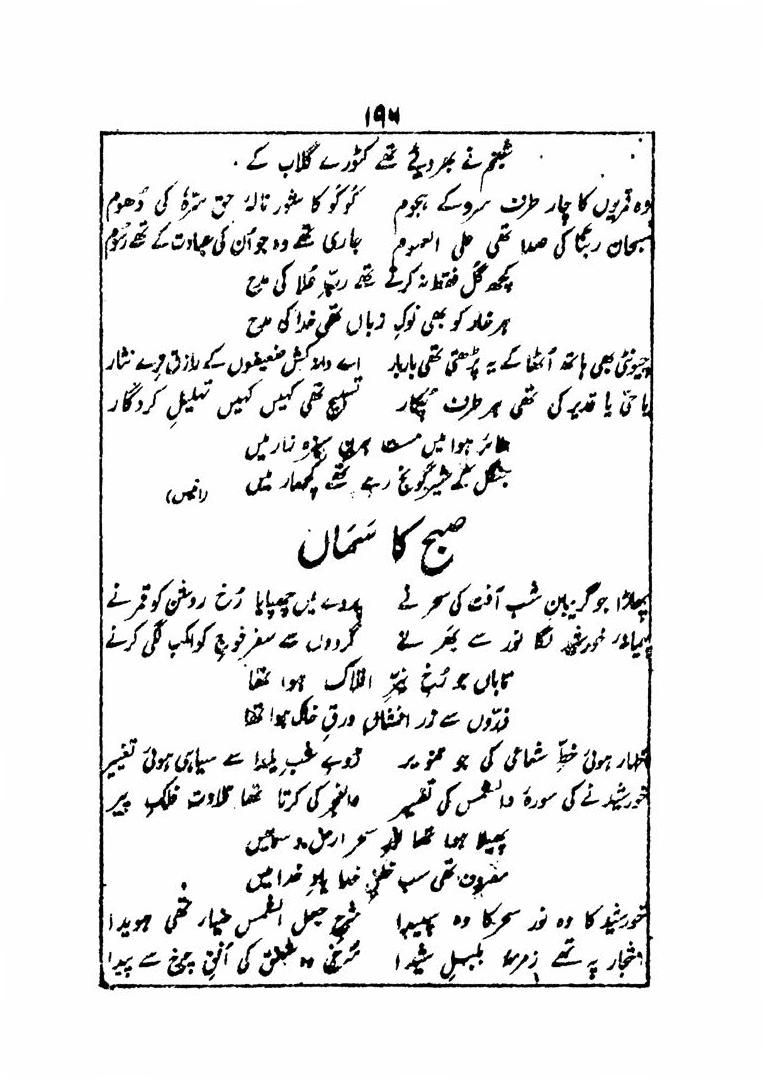 ۱۹۵
شبنم نے بھر دیئے تھے کٹورے گلاب کے
وہ قمریوں کا چار طرف سرو کے ہجوم کُوکُو کا شور نالۂ حق سرّہٗ کی دُھوم
سبحان ربّنا کی صدا تھی علی العموم جاری تھے وہ جو اُن کی عبادت کے تھے رسُوم
کچھ گُل فقط نہ کرتے تھے ربِّ عُلا کی مدح
ہر خار کو بھی نوکِ زباں تھی خدا کی مدح
چیونٹی بھی ہاتھ اُٹھا کے یہ پڑھتی تھی بار بار اے دانہ کش ضعیفوں کے رازق ترے نثار
یا حیّ یا قدیر کی تھی ہر طرف پُکار تسبیح تھی کہیں کہیں تہلیلِ کردگار
طائر ہوا میں مست ہرن سبزہ زار میں
جنگل کے شیر گونج رہے تھے کچھار میں (انیس)
صبح کا سَمَاں
پھاڑا جو گریبانِ شبِ آفت کی سحر نے پردے میں چھپایا رُخِ روشن کو قمر نے
خورشید لگا نور سے بھرنے گردوں سے سفر فوجِ کواکب لگی کرنے
تاباں جو رُخِ نیّرِ افلاک ہوا تھا
ذرّوں سے زر افشاں ورقِ خاک ہوا تھا
اظہار ہوئی خطِّ شعاعی کی جو تنویر شبِ یلدا سے سیاہی ہوئی تغییر
خورشید نے کی سورۂ والشمس کی تفسیر والفجر کی کرتا تھا تلاوت فلکِ پیر
پھیلا ہوا تھا نورِ سحر ارض و سما میں
مصروف تھی سب خلقِ خدا یادِ خدا میں
خورشید کا وہ نور سحر کا وہ سپیدا شرحِ جعل الشمس ضیاء تھی ہویدا
اشجار پہ تھے زمزمہ بلبلِ شیدا سُرخی وہ شفق کی اُفقِ چرخ سے پیدا